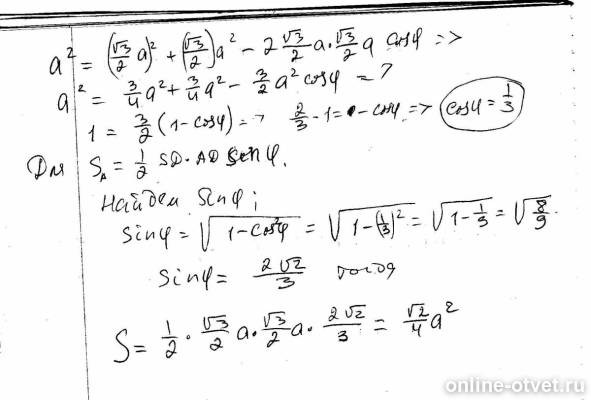 a² = (√3/2 a)² + (√3/2)a² - 2 √3/2 a · √3/2 a cosφ =>
a² = 3/4 a² + 3/4 a² - 3/2 a² cosφ =>
1 = 3/2 (1 - cosφ) => 2/3 - 1 = - cosφ => cosφ = 1/3
Для S = 1/2 SD · AD sinφ.
Найдем sinφ;
sinφ = √(1 - cos²φ) = √(1 - (1/3)²) = √(1 - 1/3) = √(8/9)
sinφ = 2√2/3 тогда
S = 1/2 · √3/2 a · √3/2 a · 2√2/3 = √2/4 a²
online-otvet.ru